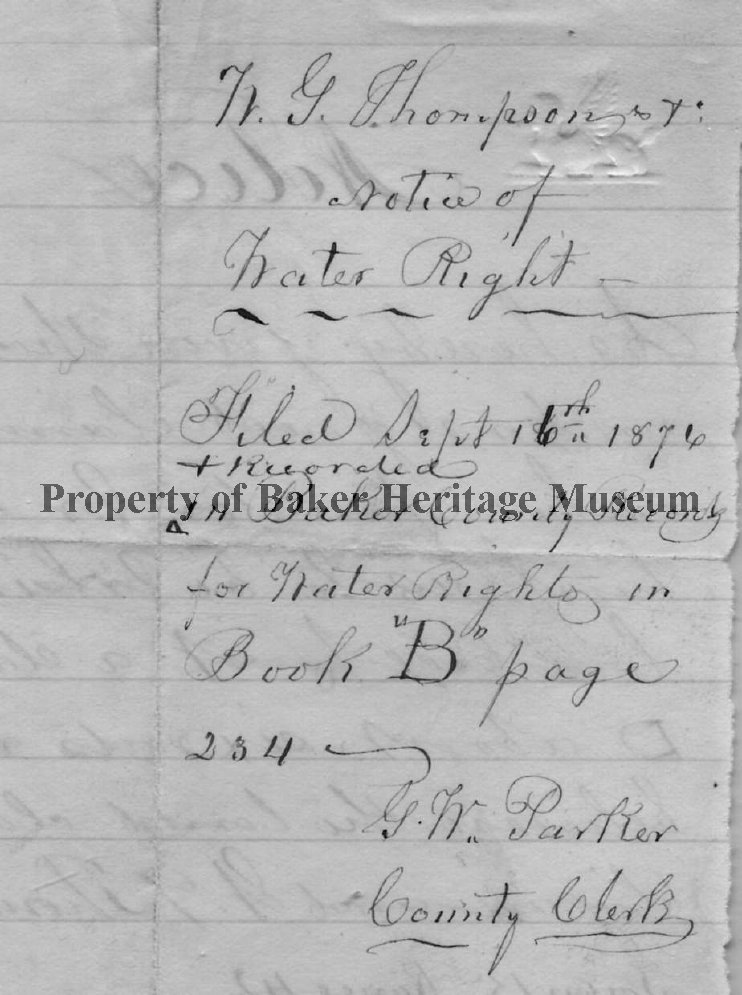 W. G. Thompson
Notice of
Water Right —
Filed Sept 16th 1876
+ Recorded
Property of Baker Heritage Museum
in Baker County Records
for Water Rights in
Book "B" page
234
G. W. Parker
County Clerk